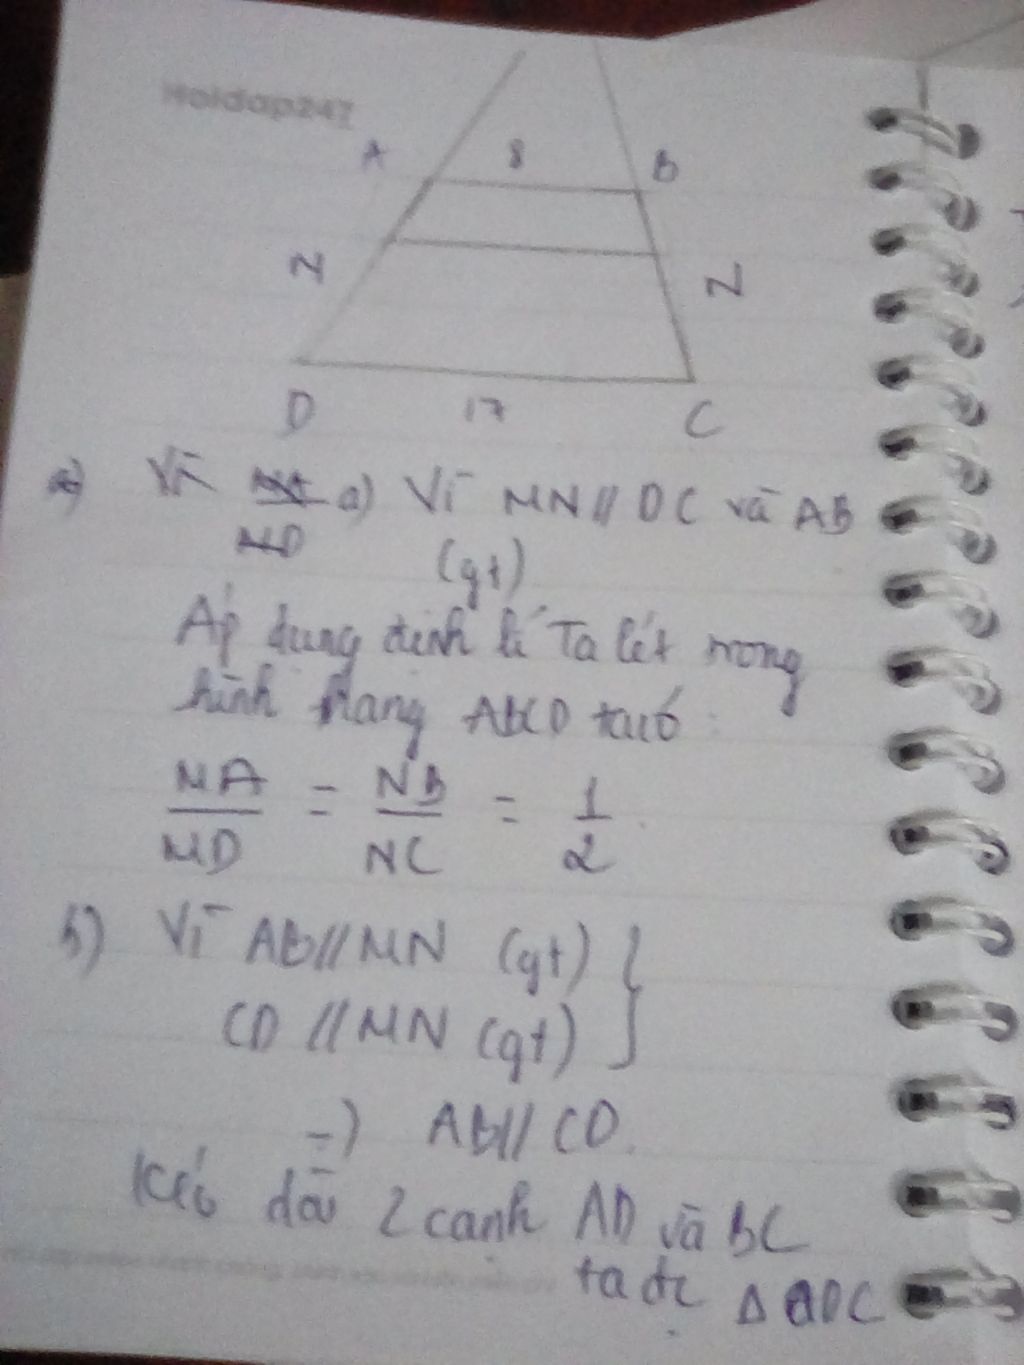 Hoidap247
A 8 B
N N
D 17 C
a) Vì MA/MD a) Vì MN // DC và AB
(gt)
Áp dụng định lí Ta lét trong
hình thang ABCD ta có :
MA/MD = NB/NC = 1/2.
b) Vì AB // MN (gt) }
CD // MN (gt)
=) AB // CD.
Kéo dài 2 cạnh AD và BC
ta đc Δ QDC